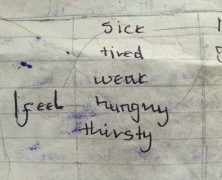 sick
tired
weak
I feel hungry
thirsty